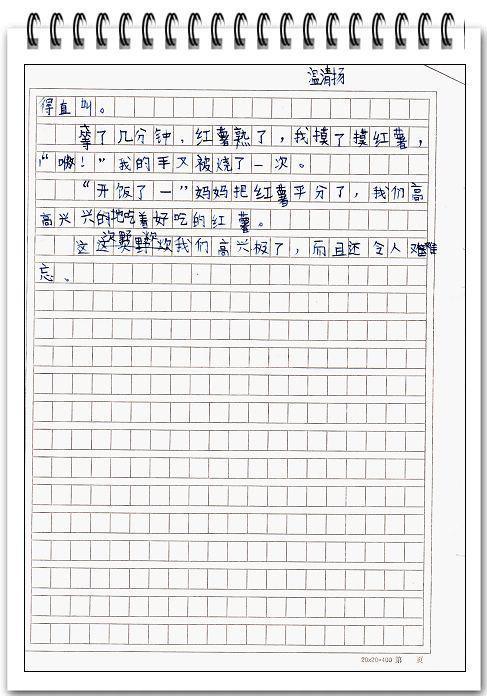 温清扬
得直叫。
等了几分钟，红薯熟了，我摸了摸红薯，
“嗷！”我的手又被烧了一次。
“开饭了—”妈妈把红薯平分了，我们高
高兴兴的地吃着好吃的红薯。
这次野炊我们高兴极了，而且还令人难
忘。
20×20=400 第 页